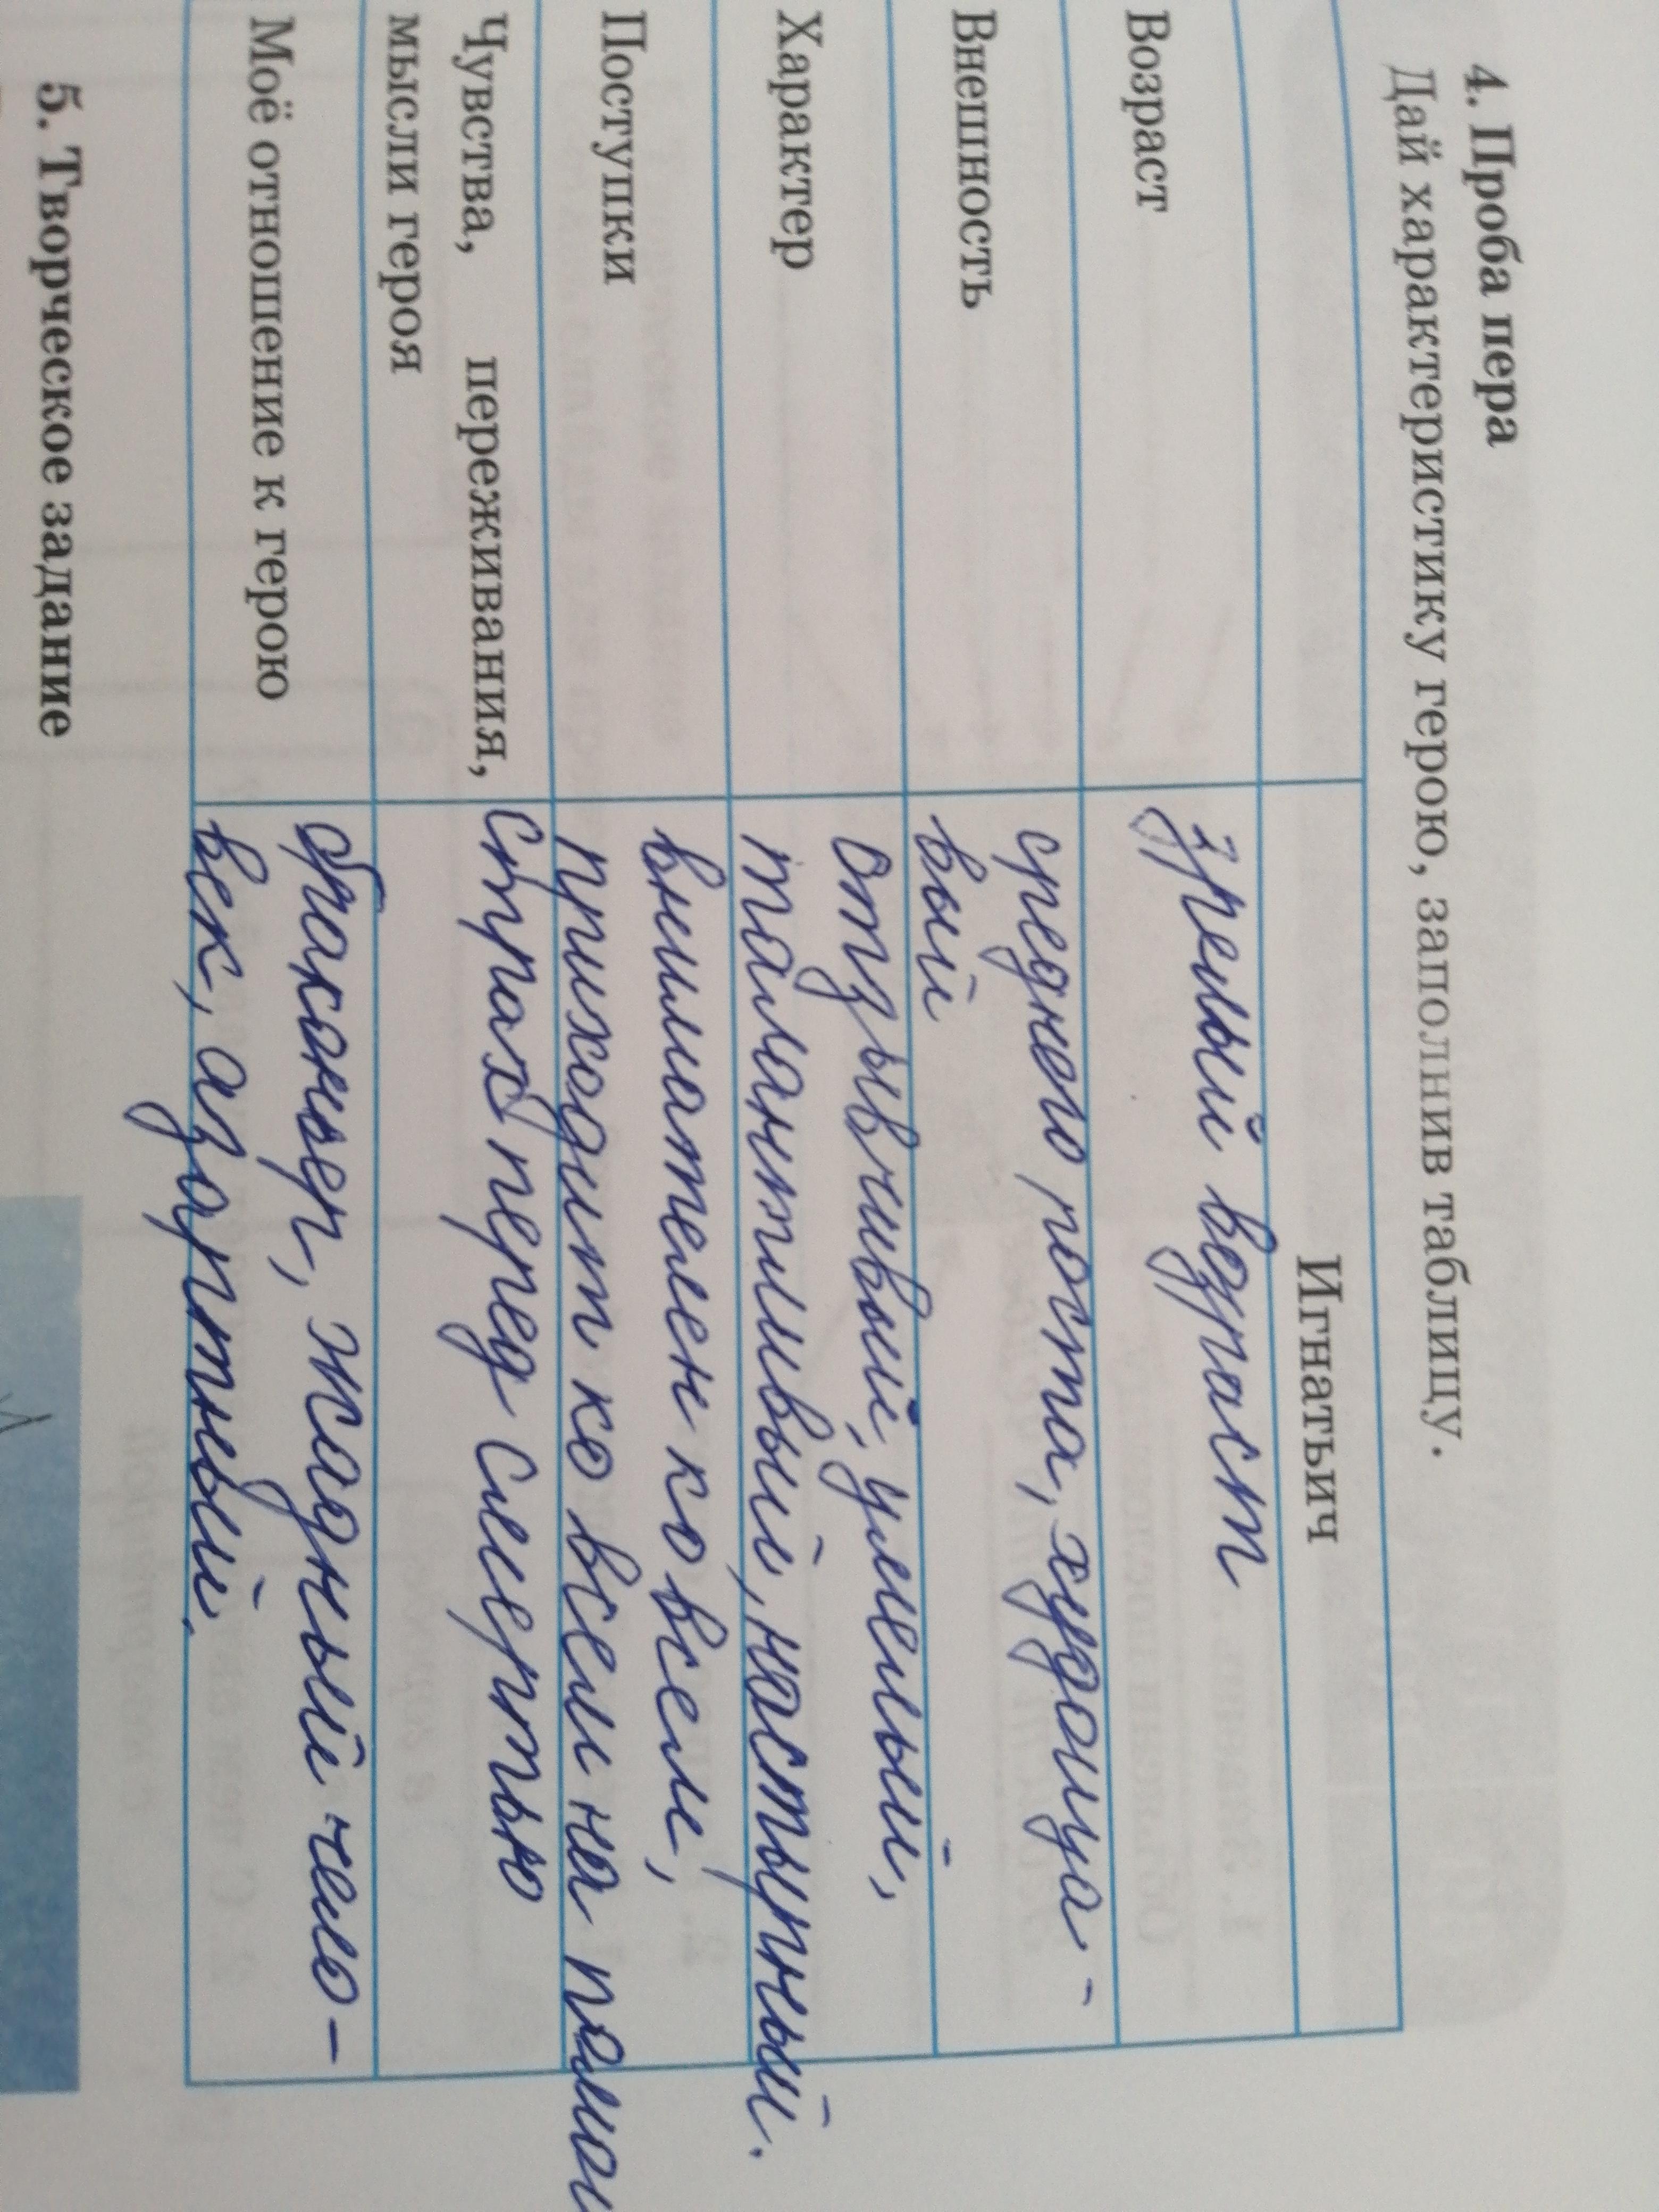 4. Проба пера
Дай характеристику герою, заполнив таблицу.
Игнатьич
Возраст
зрелый возраст
Внешность
среднего роста, худоща-
вый
Характер
отзывчивый, умелый,
талантливый, настырный.
Поступки
внимателен ко всем,
приходит ко всем на помощ
Чувства, переживания,
мысли героя
страх перед смертью
Моё отношение к герою
браканьер, жадный чело-
век, азартный.
5. Творческое задание